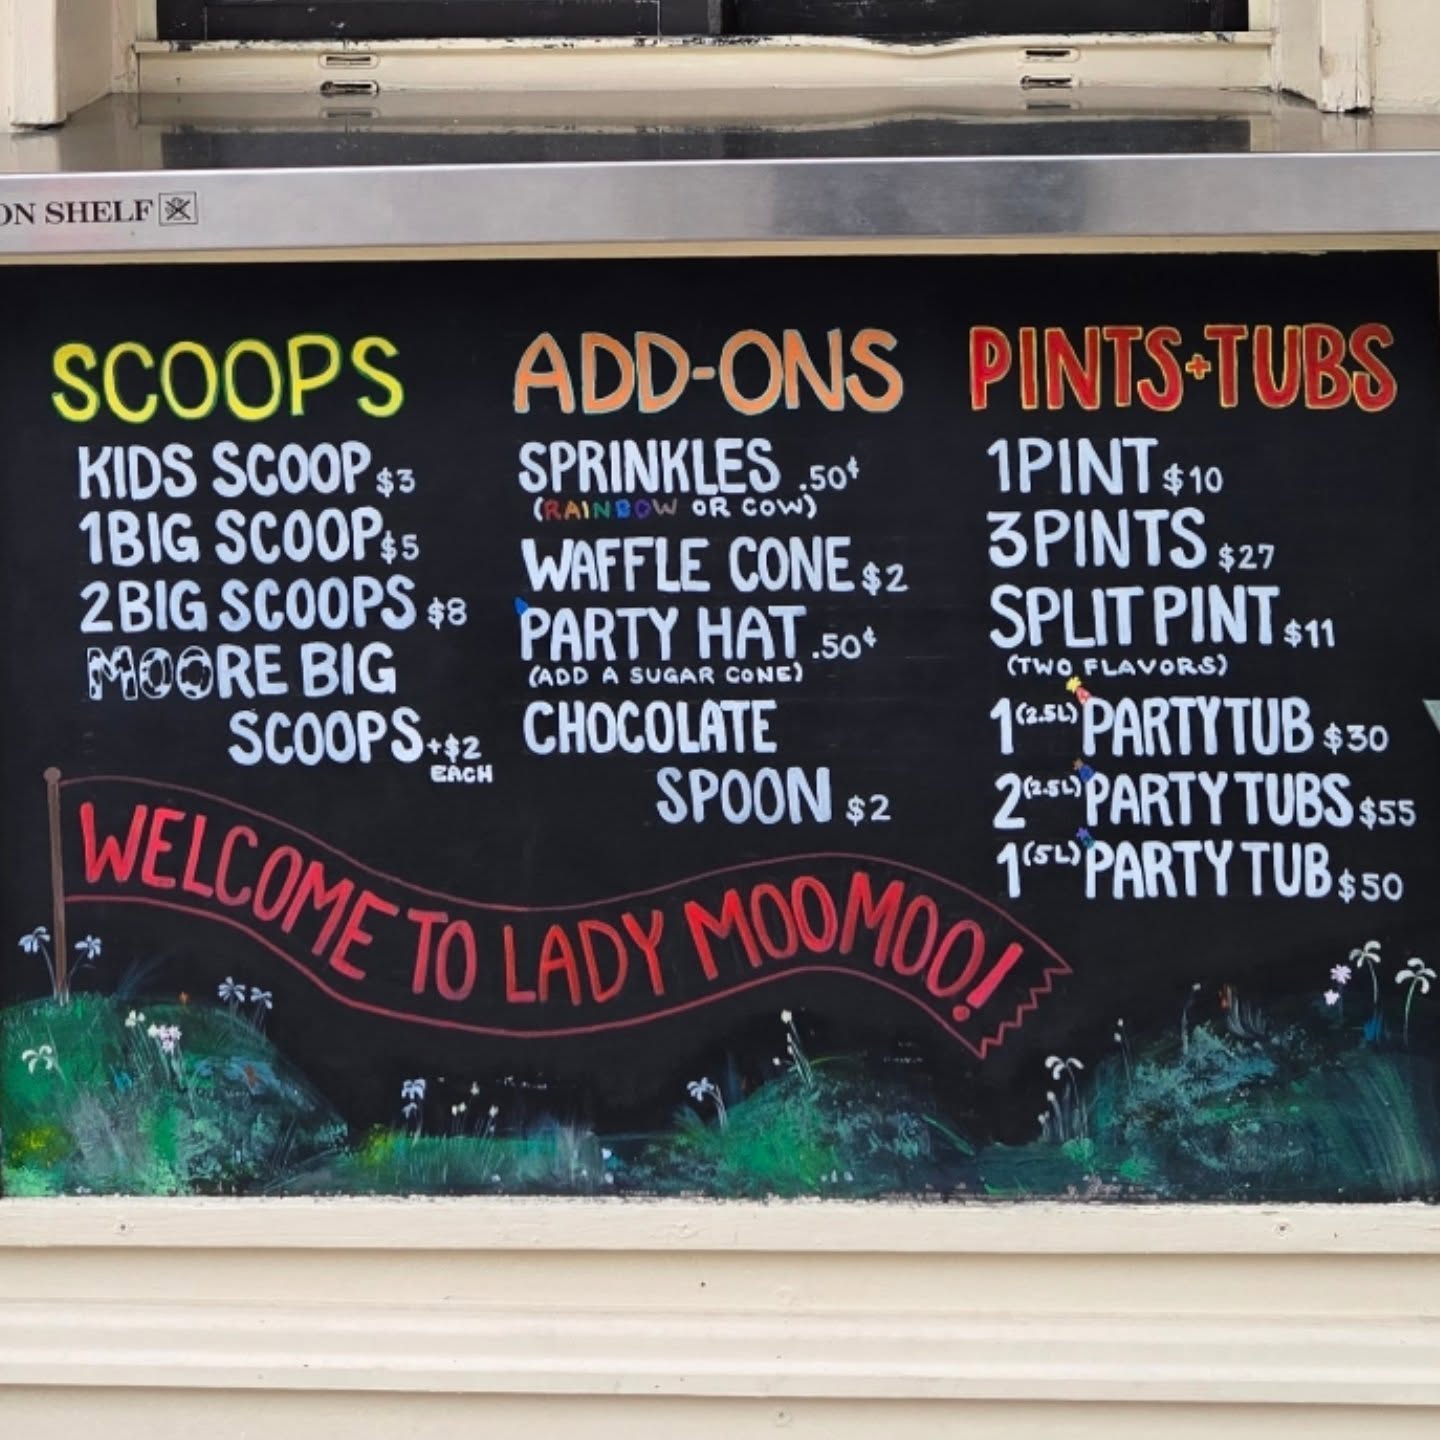 ON SHELF
SCOOPS
KIDS SCOOP $3
1 BIG SCOOP $5
2 BIG SCOOPS $8
MOORE BIG
SCOOPS +$2
EACH
ADD-ONS
SPRINKLES .50¢
(RAINBOW OR COW)
WAFFLE CONE $2
PARTY HAT .50¢
(ADD A SUGAR CONE)
CHOCOLATE
SPOON $2
PINTS+TUBS
1 PINT $10
3 PINTS $27
SPLIT PINT $11
(TWO FLAVORS)
1 (2.5L) PARTY TUB $30
2 (2.5L) PARTY TUBS $55
1 (5L) PARTY TUB $50
WELCOME TO LADY MOOMOO!